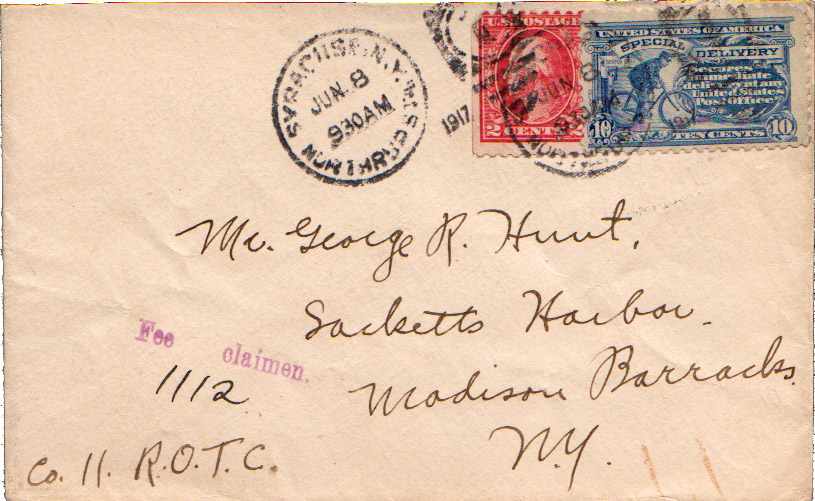 SYRACUSE, N.Y.
JUN. 8
930AM
1917
U.S. POSTAGE
2 CENTS 2
UNITED STATES OF AMERICA
SPECIAL DELIVERY
Secures
immediate
delivery at any
United States
Post Office
10 TEN CENTS 10
Mr. George R. Hunt,
Sacketts Harbor.
Fee claimen.
1112
Madison Barracks.
N.Y.
Co. 11. R.O.T.C.